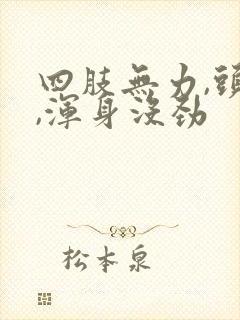 四肢無力,頭
,渾身沒勁
松本泉